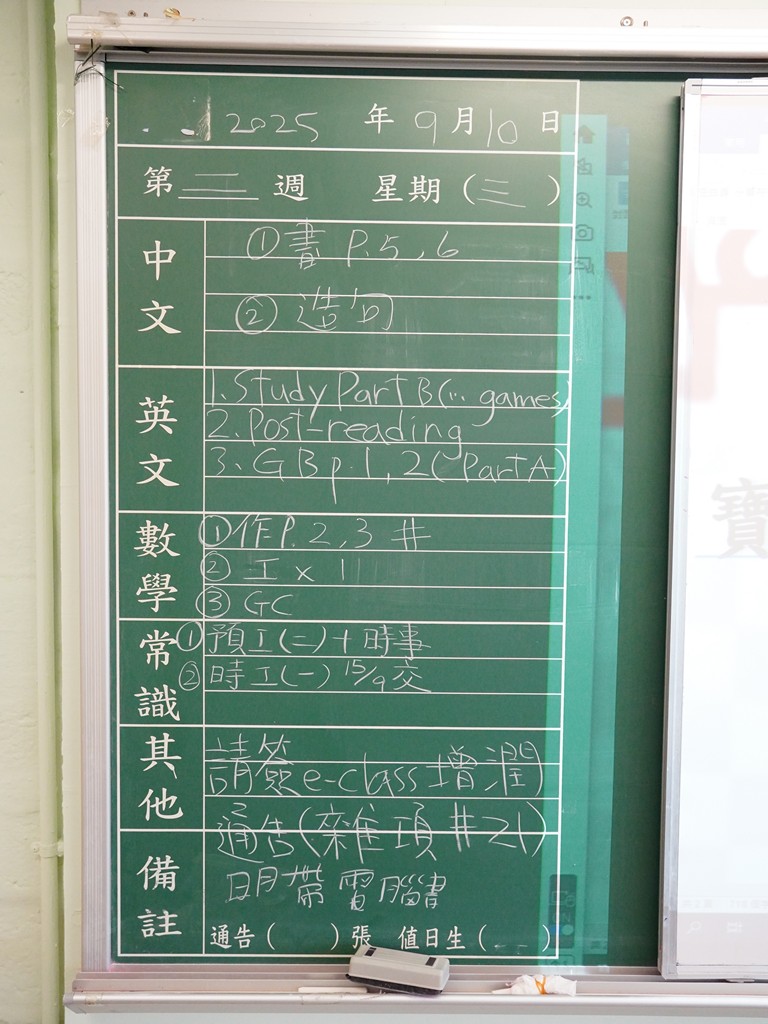 2025 年 9 月 10 日
第 二 週 星期 (三)
中文
① 書 P.5,6
② 造句
英文
1. Study Part B (.. games)
2. Post-reading
3. GB p.1,2 (Part A)
數學
① 作 P.2,3 #
② 工 x 1
③ GC
常識
① 預工(二)+時事
② 時工(一) 15/9 交
其他
請簽 e-class 增潤
通告(雜項 #21)
備註
明帶電腦書
通告( )張 值日生( )
寶